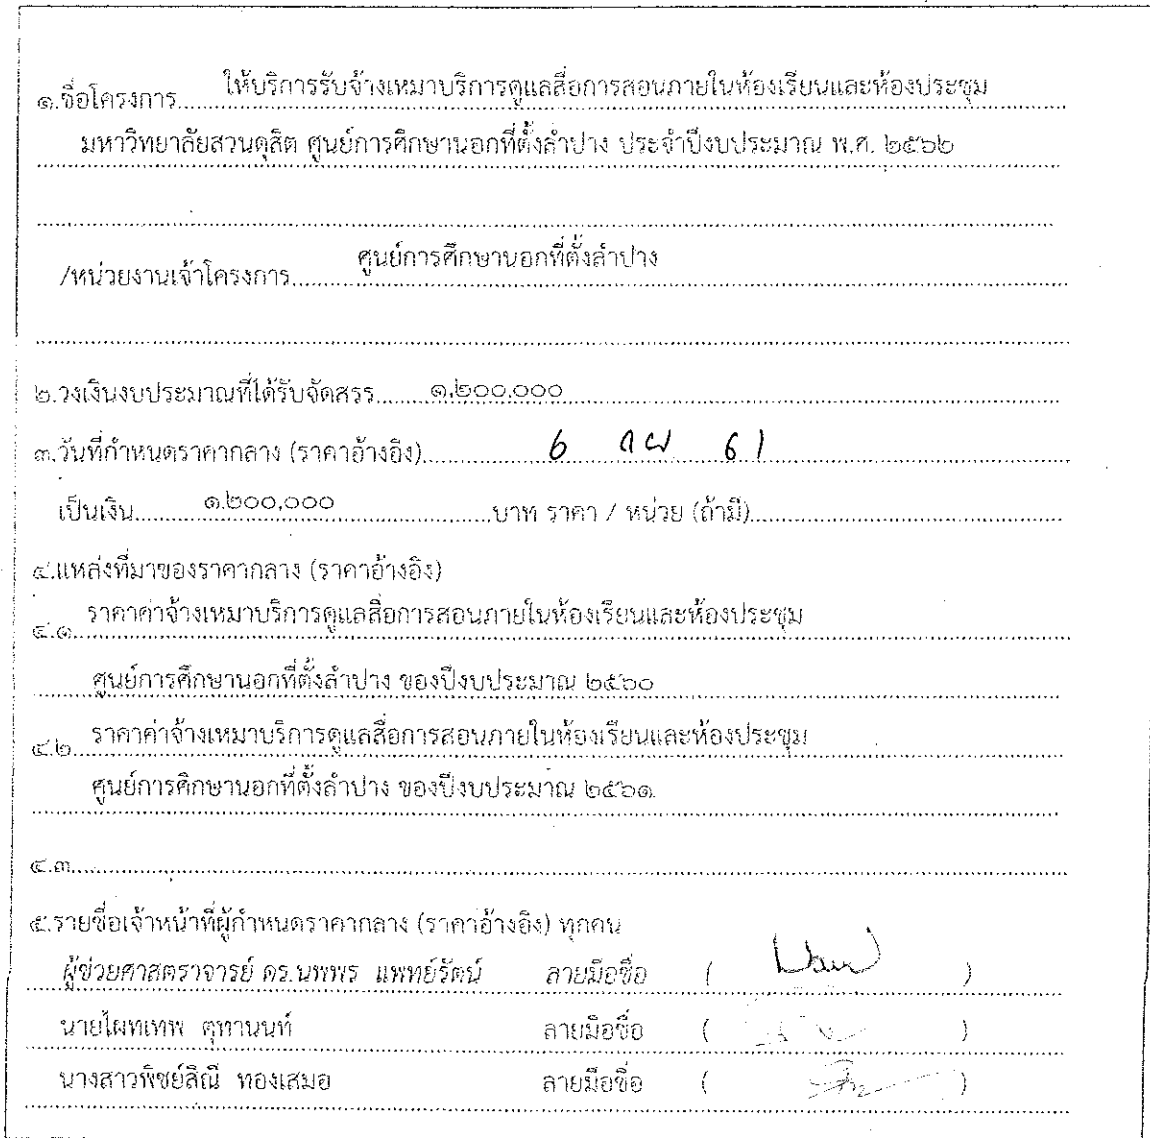 ๑.ชื่อโครงการ ให้บริการรับจ้างเหมาบริการดูแลสื่อการสอนภายในห้องเรียนและห้องประชุม
มหาวิทยาลัยสวนดุสิต ศูนย์การศึกษานอกที่ตั้งลำปาง ประจำปีงบประมาณ พ.ศ. ๒๕๖๒
/หน่วยงานเจ้าโครงการ ศูนย์การศึกษานอกที่ตั้งลำปาง
๒.วงเงินงบประมาณที่ได้รับจัดสรร ๑,๒๐๐,๐๐๐
๓.วันที่กำหนดราคากลาง (ราคาอ้างอิง) 6 กย 61
เป็นเงิน ๑,๒๐๐,๐๐๐ บาท ราคา / หน่วย (ถ้ามี)
๔.แหล่งที่มาของราคากลาง (ราคาอ้างอิง)
๔.๑ ราคาค่าจ้างเหมาบริการดูแลสื่อการสอนภายในห้องเรียนและห้องประชุม
ศูนย์การศึกษานอกที่ตั้งลำปาง ของปีงบประมาณ ๒๕๖๐
๔.๒ ราคาค่าจ้างเหมาบริการดูแลสื่อการสอนภายในห้องเรียนและห้องประชุม
ศูนย์การศึกษานอกที่ตั้งลำปาง ของปีงบประมาณ ๒๕๖๑
๔.๓
๕.รายชื่อเจ้าหน้าที่ผู้กำหนดราคากลาง (ราคาอ้างอิง) ทุกคน
ผู้ช่วยศาสตราจารย์ ดร.นพพร แพทย์รัตน์ ลายมือชื่อ ( )
นายไผทเทพ ตุทานนท์ ลายมือชื่อ ( )
นางสาวพิชย์สิณี ทองเสมอ ลายมือชื่อ ( )